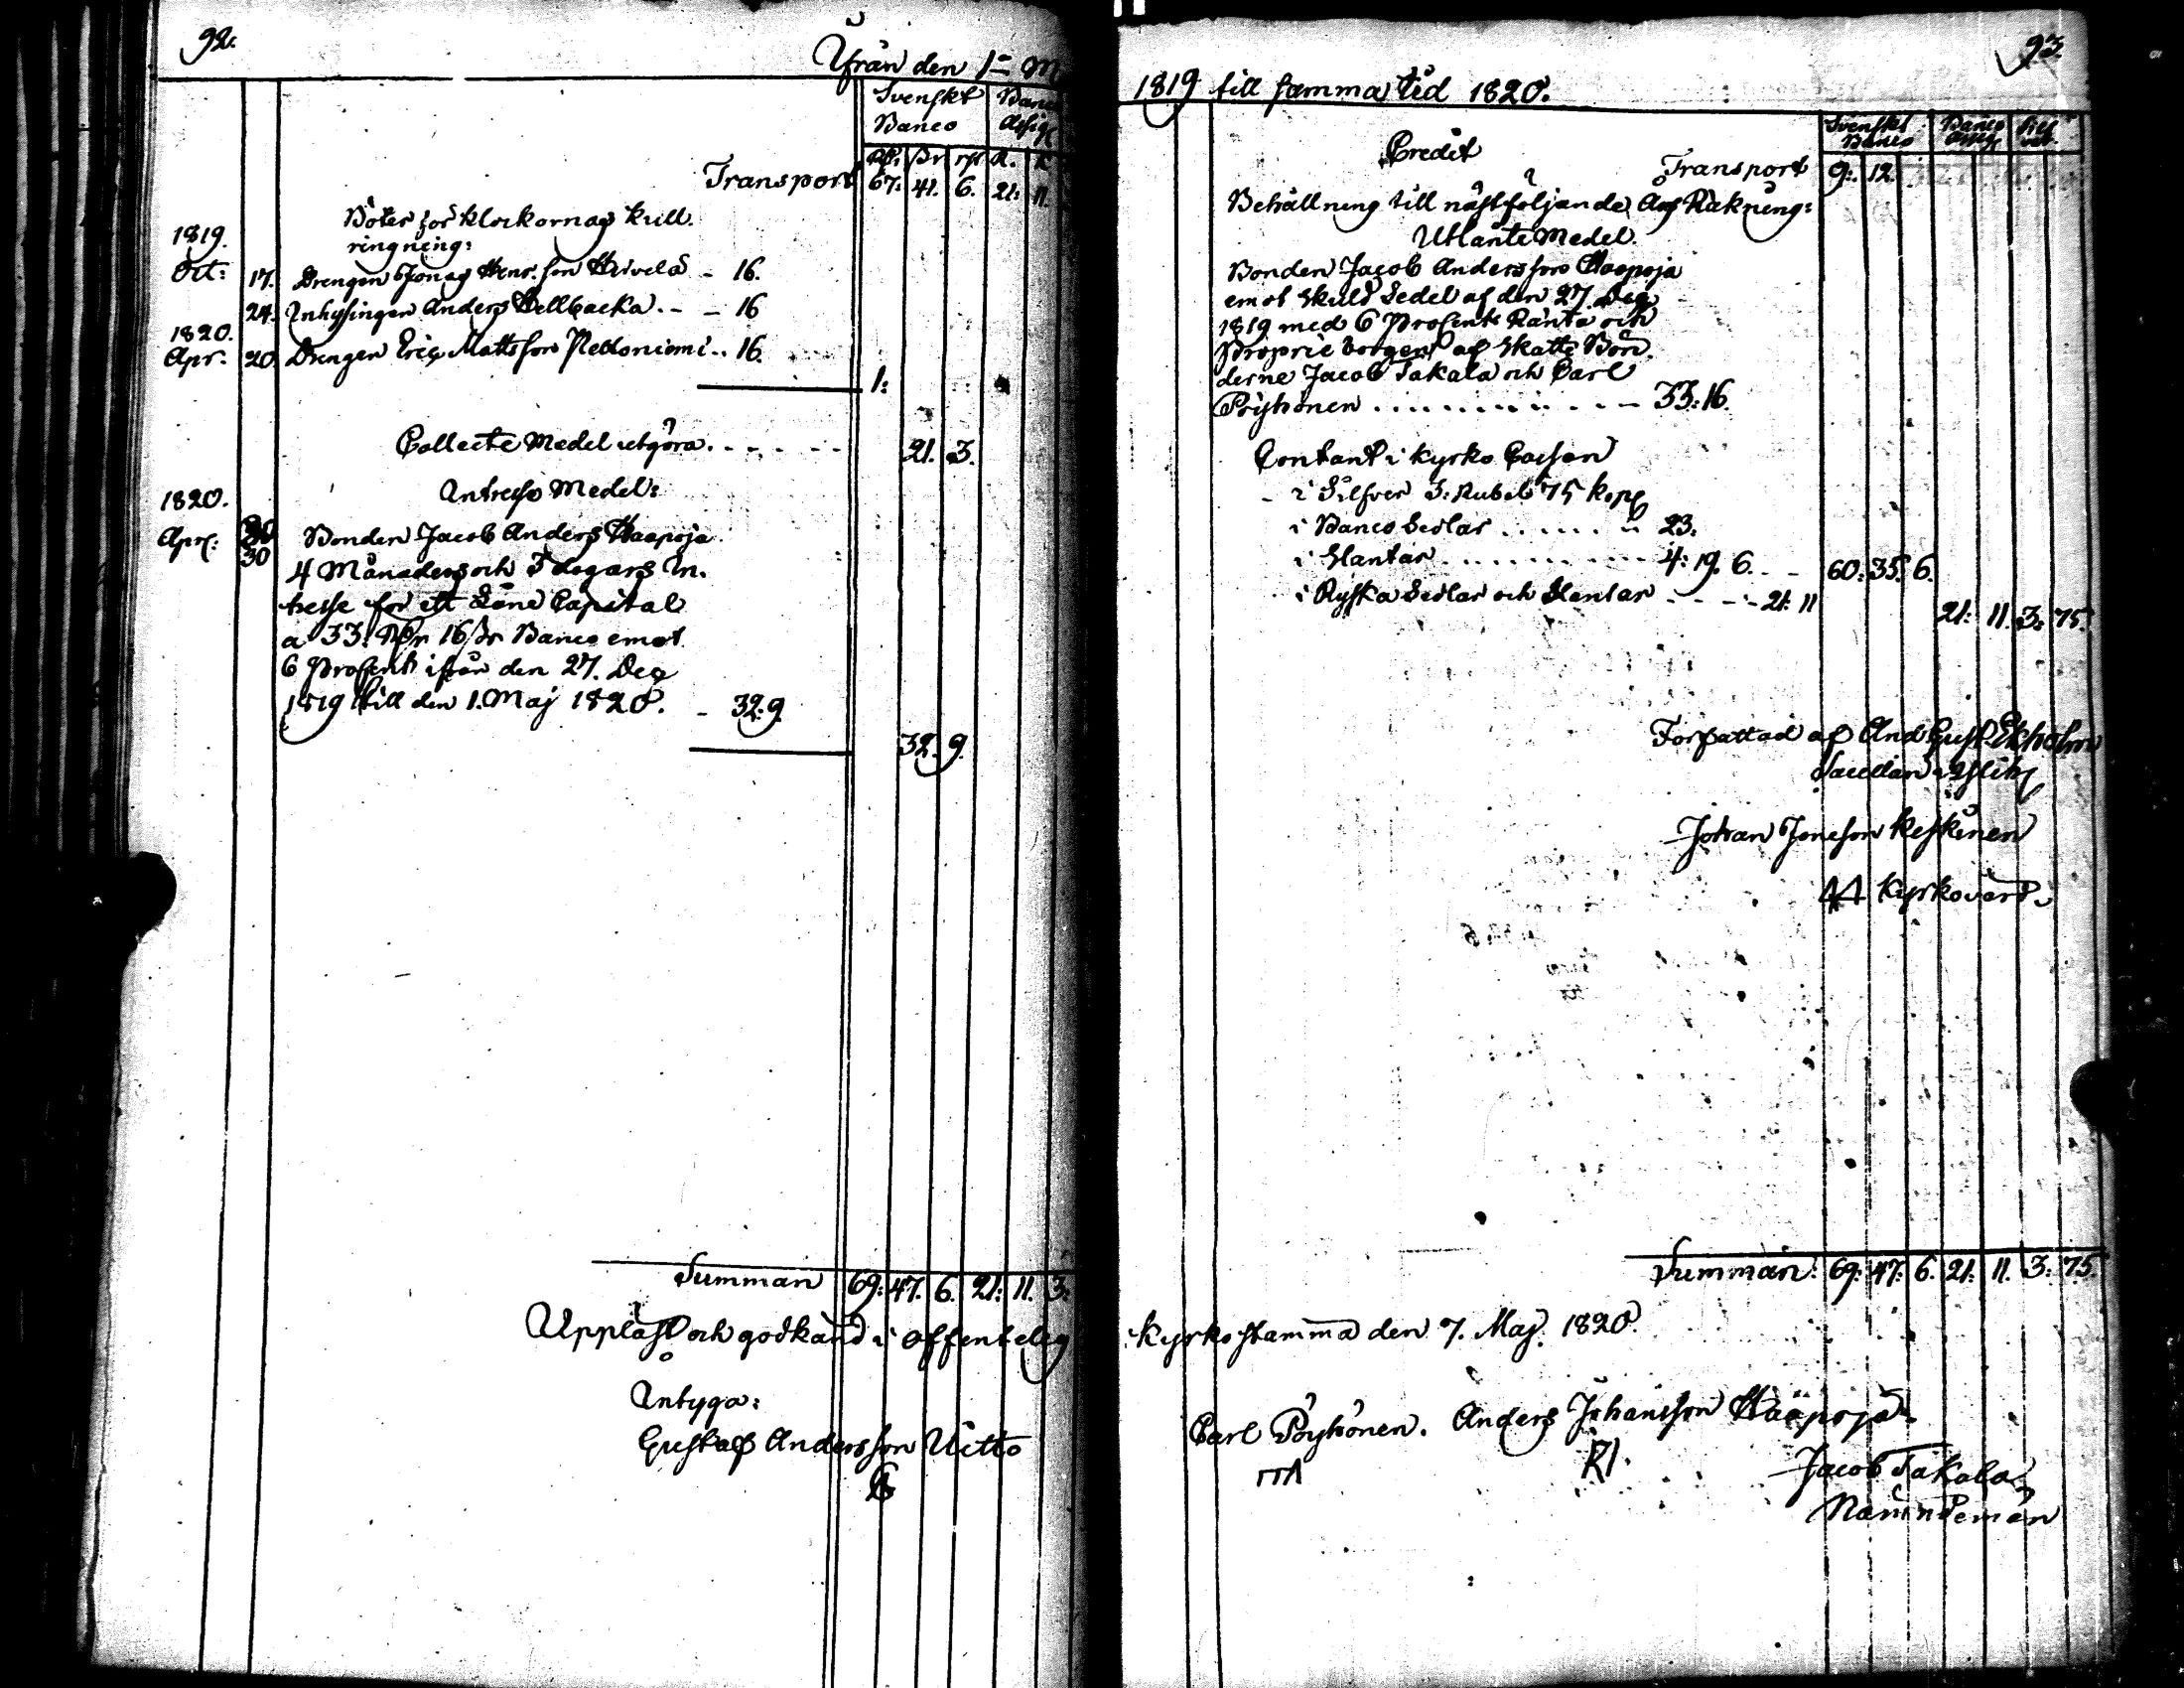 92.
Ifrån den 1= M
Svenskt Banco
Banco Assig
Rdr. sk. rst. R. K
Transport 67: 41. 6. 21: 11.
Böter för klockornas kull-
1819. ringning:
Oct: 17. Drengen Jonas Henr.son Hirvelä - 16.
24. Inhysingen Anders Hellbacka. - - 16
1820.
Apr. 20. Drengen Eric Mattsson Nettoniemi .. 16.
1:
Collecte Medel utgöra. - - - - - 21. 3.
1820. Intresse Medel:
Apr: 30 Bonden Jacob Anders Haapoja
4 Månaders och 3 dagars In-
tresse för ett Låne Capital
a 33. Rdr 16 sk Banco emot
6 Procent ifrån den 27. Dec
1819 till den 1. Maj 1820. - 32. 9.
32. 9.
Summan 69: 47. 6. 21: 11. 3:
Uppläst och godkänd i offentelig
Intyga:
Gustaf Andersson Uitto
93.
1819 till samma tid 1820.
Credit
Svenskt Banco
Banco Assig
Silfver
Transport 9: 12.
Behållning till nästföljande Års Räkning:
Utlånte Medel.
Bonden Jacob Andersson Haapoja
emot Skuld Sedel af den 27. Dec
1819 med 6 Procents Ränta och
Proprie borgen af Skatte Bön-
derne Jacob Takala och Carl
Pöyhönen . . . . . . . . . - - 33: 16.
Contant i Kyrko Cassan
- i Silfver 3: Rubel 75 kop
i Banco Sedlar . . . . . . 23.
i Slantar . . . . . . . . . 4: 19. 6. - - 60: 35. 6.
i Ryska Sedlar och Slantar - - - - 21: 11 21: 11. 3: 75.
Författad af And Gust. Ekholm
Sacellan i
Johan Jonsson Keskinen
Kyrkovärd.
Summan: 69: 47: 6. 21: 11. 3: 75.
Kyrkostämma den 7. Maj. 1820.
Carl Pöyhönen. Anders Johansson Haapoja
Jacob Takala
Nämndeman